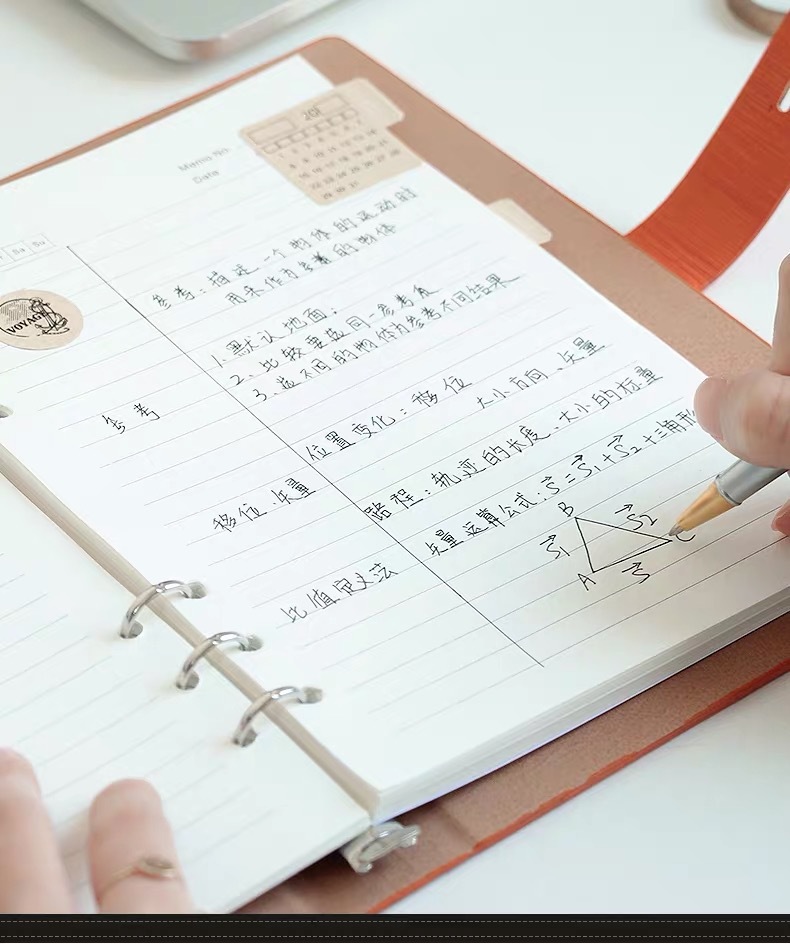 Memo No.
Date
Su
Su
VOYAGE
参考：描述一个物体的运动时
用来作为参考的物体
1.默认地面：
2、比较要选同一参考点
3、选不同的物体为参考不同结果
参考
位置变化：移位
大小方向、矢量
移位、矢量
路程：轨迹的长度、大小的标量
矢量运算公式：S=S₁+S₂+三角形
B
S₁
S₂
A
S
C
比值定义法